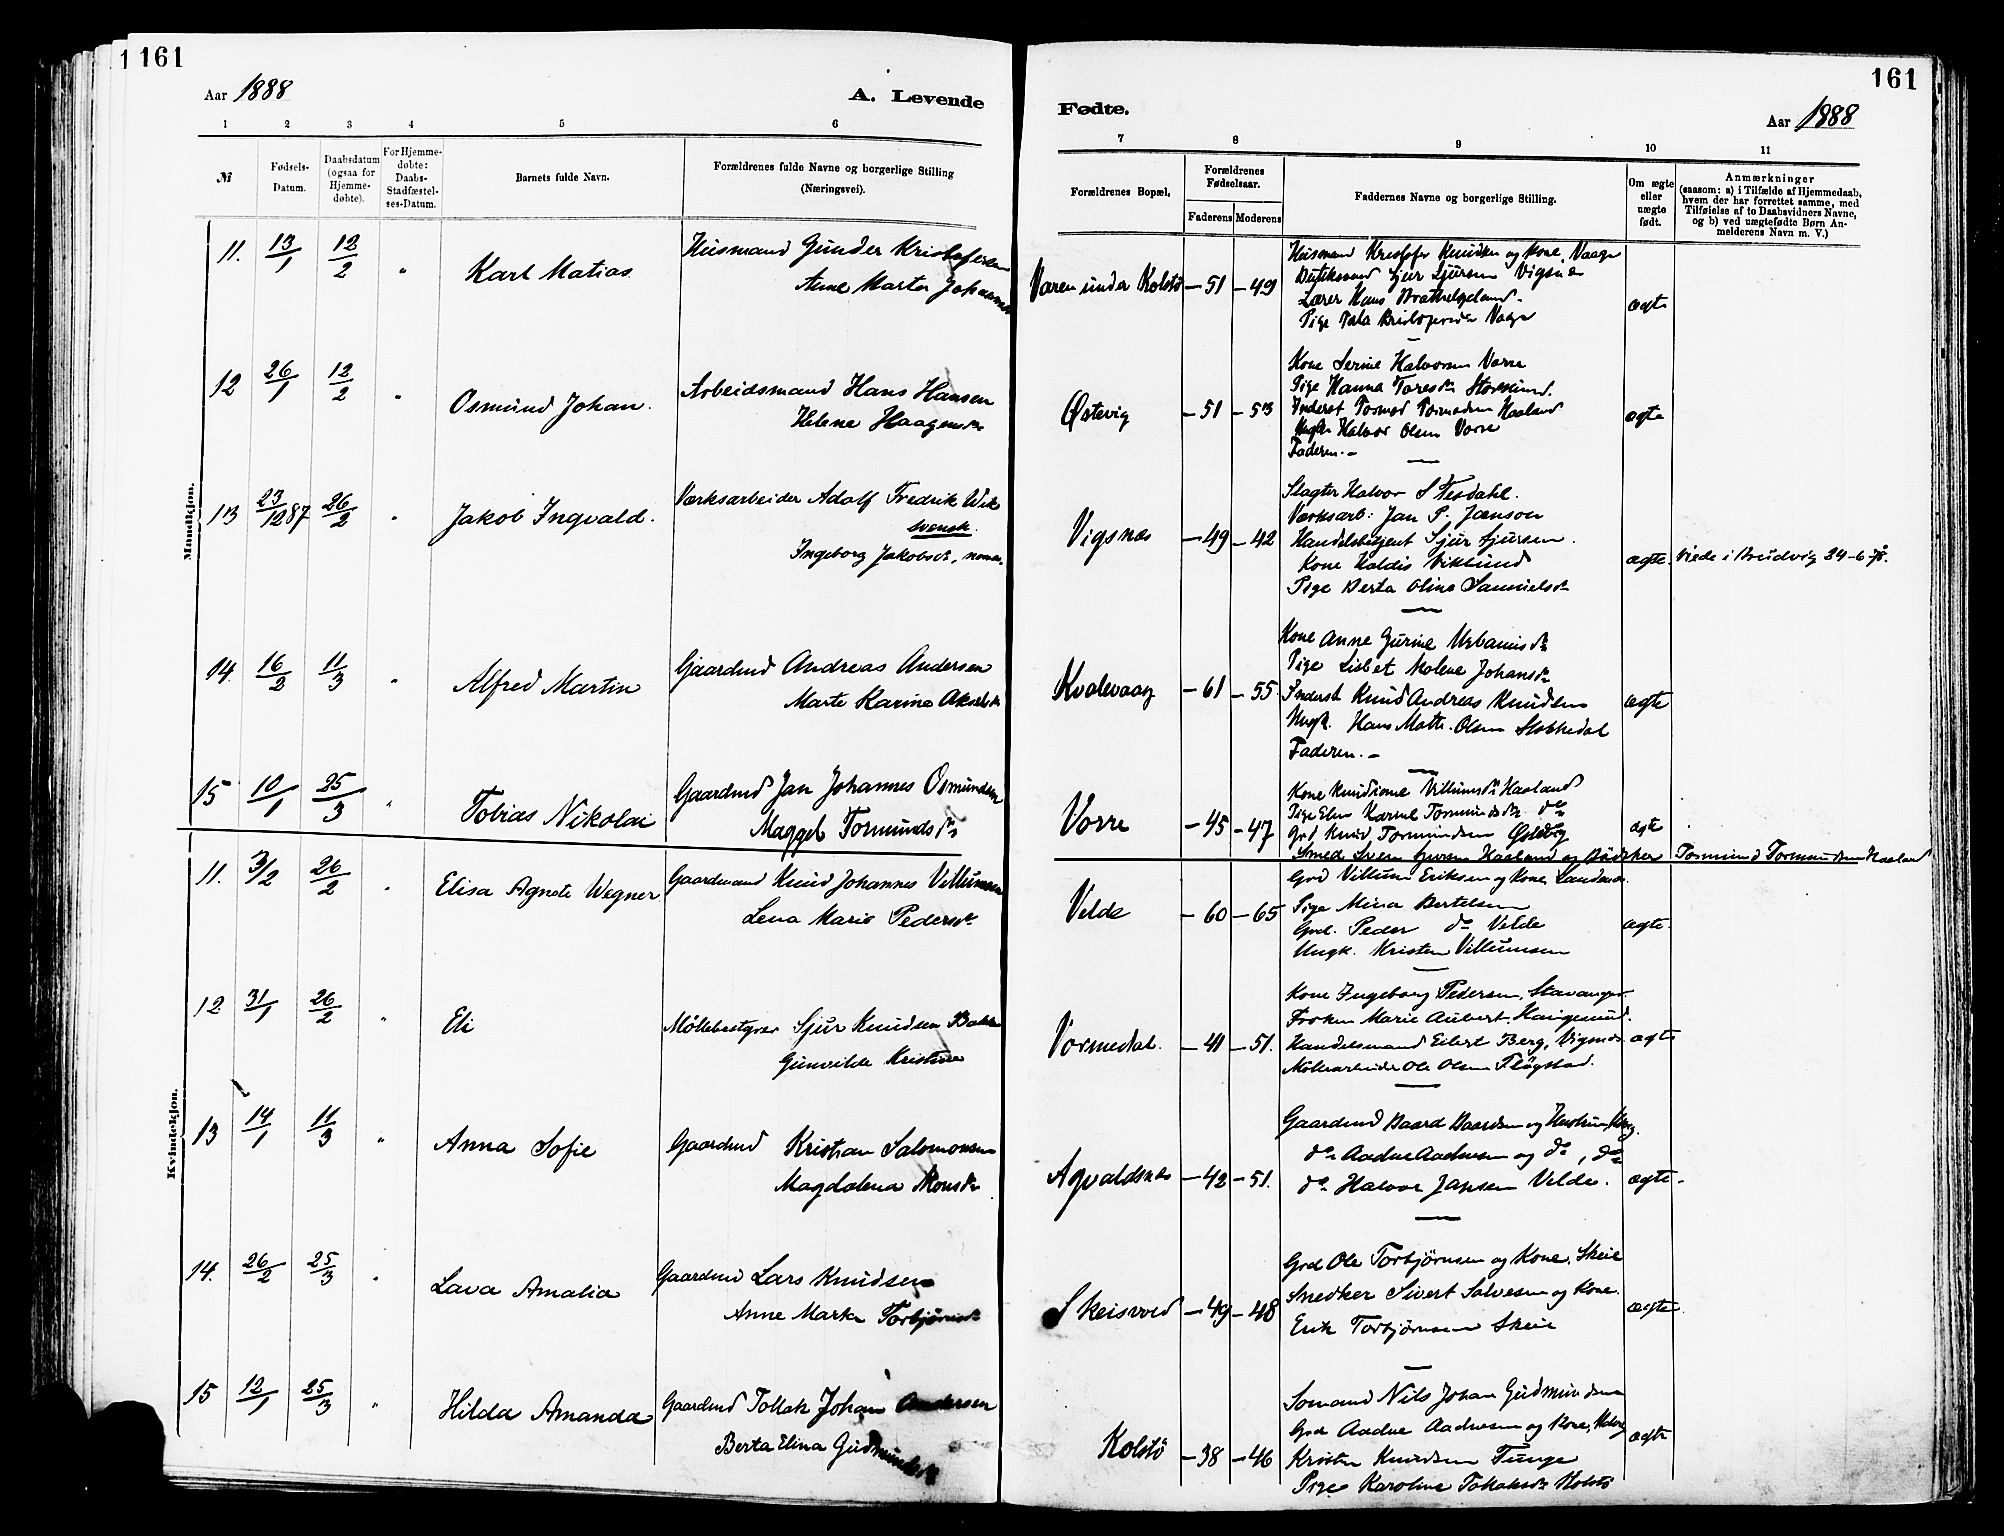 1 161
161
Aar 1888
A. Levende
Fødte.
Aar 1888
1 2 3 4 5 6 7 8 9 10 11
№
Fødsels-
Datum.
Daabsdatum
(ogsaa for
Hjemme-
døbte).
For Hjemme-
døbte:
Daabs-
Stadfæstel-
ses-Datum.
Barnets fulde Navn.
Forældrenes fulde Navne og borgerlige Stilling
(Næringsvei).
Forældrenes Bopæl,
Forældrenes
Fødselsaar.
Faderens Moderens
Faddernes Navne og borgerlige Stilling.
Om ægte
eller
uægte
født.
Anmærkninger
(saasom: a) i Tilfælde af Hjemmedaab,
hvem der har forrettet samme, med
Tilføielse af to Daabsvidners Navne,
og b) ved uægtefødte Børn An-
melderens Navn m. V.)
Mandkjøn.
11. 13/1 12/2 " Karl Matias
Husmand Gunder Kristofersen
Anne Marta
Været under Kolstø — 51 — 49
Husmand Kristofer Knudsen og Kone, Vaage
Sjur Sjursen Vigsnæs
Lærer Hans
Pige Vaage
ægte
12 26/1 12/2 " Osmund Johan.
Arbeidsmand Hans Hansen
Helene Haagensdr
Østevig — 51 — 53
Kone Serine Halvorsen Vorre
Pige Hanna Toresdr Storesund.
Inderst Tormod Tormodsen Haaland
Ungk Halvor Olsen Vorre
Faderen. –
ægte
13 23/12 87 26/2 " Jakob Ingvald.
Værksarbeider Adolf Fredrik Wik
svensk.
Ingeborg Jakobsdr, norsk.
Vigsnæs — 49 — 42
Slagter Halvor S Tesdahl.
Værksarb: Jan P. Jænson
Handelsbetjent Sjur Sjursen.
Kone Haldis Viklund
Pige Berta Olina Samuelsdr
ægte. Viede i Brudvig 24-6-78.
14. 16/2 11/3 " Alfred Martin
Gaardmd Andreas Andersen
Marte Karine Akselsdr
Kvalevaag — 61 — 55.
Kone Anne Gurine Urbanusdr
Pige Lisbet Malene Johansdr
Inderst Knud Andreas Knudsen
Ungk. Hans Matti. Olsen Stokkedal
Faderen. –
ægte
15 10/1 25/3 " Tobias Nikolai
Gaardmd Jan Johannes Osmundsen
Maggel Tormundsdr
Vorre — 45 — 47
Kone Villumsdr Haaland
Pige Elen Karine Tormundsdr do
Grd Knud Tormundsen Østevig
Smed Sven Haaland og Bødker Tormund Tormundsen Haaland
ægte
Kvindekjøn.
11. 3/2 26/2 " Elisa Agnete Wegner
Gaardmand Knud Johannes Villumsen
Lena Marie Pedersdr
Velde — 60 — 65
Grd Villum Eriksen og Kone, Landenes.
Pige Mina Bertelsen
Grd. Peder do Velde
Ungk. Kristen Villumsen
ægte.
12 31/1 26/2 " Eli
Møllebestyrer Sjur Knudsen Bakke
Gunvilde Kristine
Vormedal. — 41 — 51.
Kone Ingeborg Pedersen, Stavanger.
Frøken Marie Aubert, Haugesund.
Handelsmand Eilert Berg, Vigsnes
Møllearbeider Ole Olsen Fløgstad.
ægte
13 14/1 11/3 " Anna Sofie
Gaardmd Kristian Salomonsen
Magdalena Monsdr
Agvaldsnæs — 42 — 51.
Gaardmd Baard Baardsen og Hustru,
do Aadne Aadnesen og do, do
do Halvor Jansen Velde.
ægte.
14. 26/2 25/3 " Lava Amalia
Gaardmd Lars Knudsen
Anne Marta Torbjørnsdr
Skeisvold — 49 — 48
Grd Ole Torbjørnsen og Kone, Skeie
Snedker Sivert Salvesen og Kone.
Erik Torbjørnsen Skeie
ægte.
15 12/1 25/3 " Hilda Amanda
Gaardmd Tollak Johan Andersen
Berta Elina Gudmundsdr
Kolstø — 38 — 46
Sømand Nils Johan Gudmundsen
Grd Aadne Aadnesen og Kone,
Kristen Knudsen Tunge
Pige Karoline Kolstø
ægte